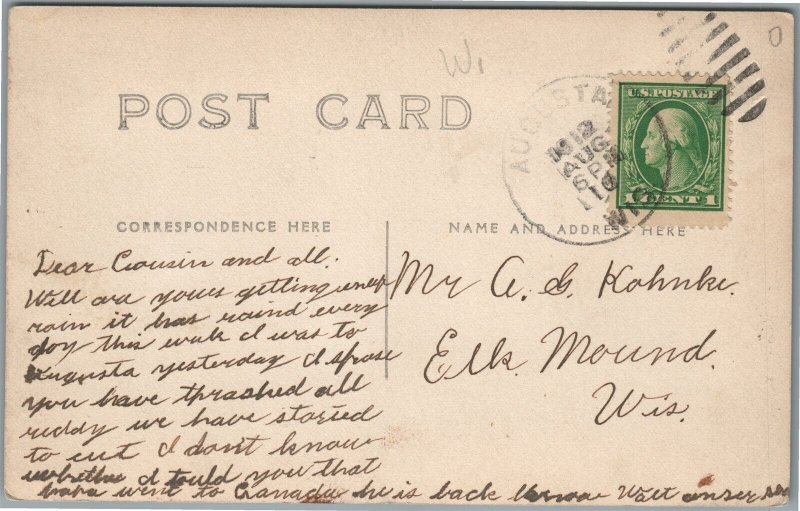 Wi
0
POST CARD
AUGUSTA
1912
AUG
6 P
WIS
U.S. POSTAGE
1 CENT 1
CORRESPONDENCE HERE
NAME AND ADDRESS HERE
Dear Cousin and all.
Will are yours getting
rain it has raind every
day this weak I was to
Augusta yesterday I spose
you have thrashed all
ruddy we have storted
to cut I dont know
I tould you that
went to Canada he is back Walt
Mr A. G. Kohnke.
Elk Mound.
Wis.